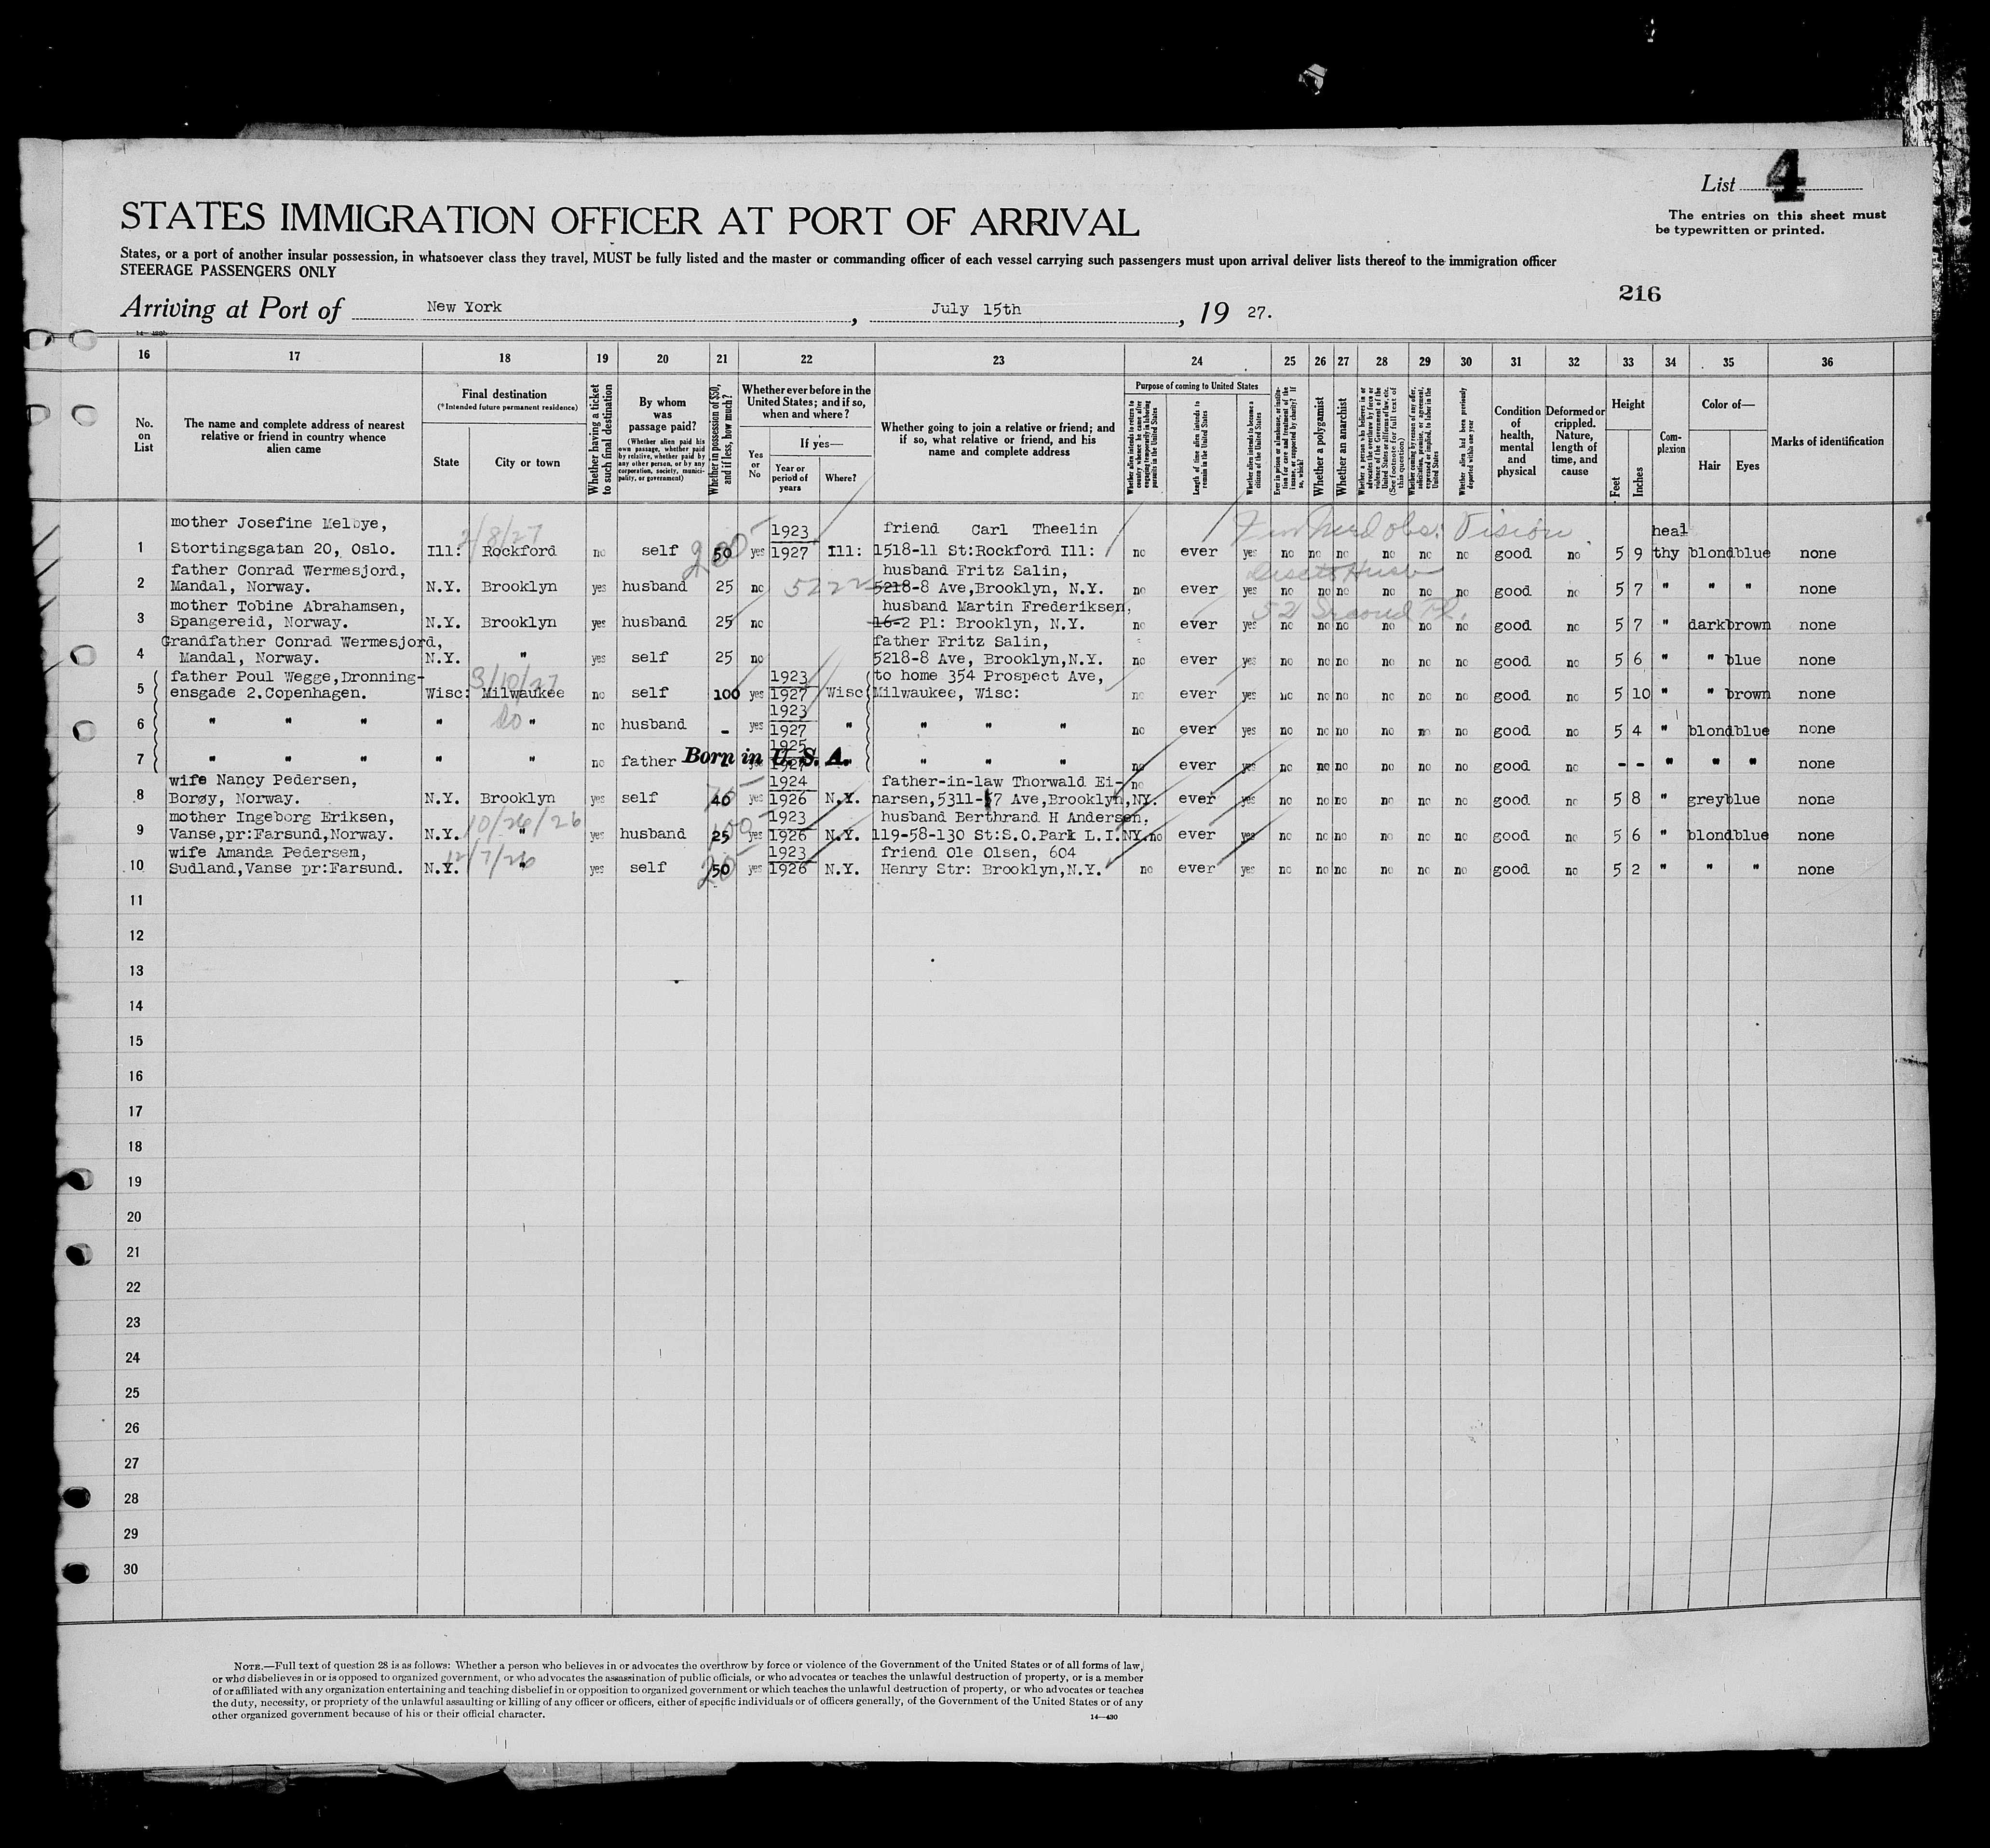 List 4
The entries on this sheet must
be typewritten or printed.
STATES IMMIGRATION OFFICER AT PORT OF ARRIVAL
States, or a port of another insular possession, in whatsoever class they travel, MUST be fully listed and the master or commanding officer of each vessel carrying such passengers must upon arrival deliver lists thereof to the immigration officer
STEERAGE PASSENGERS ONLY
216
Arriving at Port of New York, July 15th, 19 27.
16 17 18 19 20 21 22 23 24 25 26 27 28 29 30 31 32 33 34 35 36
No. on List
The name and complete address of nearest relative or friend in country whence alien came
Final destination
(*Intended future permanent residence)
State
City or town
Whether having a ticket to such final destination
By whom was passage paid?
(Whether alien paid his own passage, whether paid by relative, whether paid by any other person, or by any corporation, society, municipality, or government)
Whether in possession of $50, and if less, how much?
Whether ever before in the United States; and if so, when and where?
Yes or No
If yes—
Year or period of years
Where?
Whether going to join a relative or friend; and if so, what relative or friend, and his name and complete address
Purpose of coming to United States
Length of time alien intends to remain in the United States
Whether alien intends to become a citizen of the United States
Whether a polygamist
Whether an anarchist
Condition of health, mental and physical
Deformed or crippled. Nature, length of time, and cause
Height
Feet
Inches
Complexion
Color of—
Hair
Eyes
Marks of identification
mother Josefine Melbye, 1923 friend Carl Theelin heal
1 Stortingsgatan 20, Oslo. Ill: Rockford no self 50 yes 1927 Ill: 1518-11 St:Rockford Ill: no ever yes no no no no no no good no 5 9 thy blond blue none
2/8/27
200
Vision
father Conrad Wermesjord, husband Fritz Salin,
2 Mandal, Norway. N.Y. Brooklyn yes husband 25 no 5222 5218-8 Ave,Brooklyn, N.Y. no ever yes no no no no no no good no 5 7 " " " none
mother Tobine Abrahamsen, husband Martin Frederiksen,
3 Spangereid, Norway. N.Y. Brooklyn yes husband 25 no 16-2 Pl: Brooklyn, N.Y. no ever yes no no no no no no good no 5 7 " dark brown none
52 Second Pl.
Grandfather Conrad Wermesjord, father Fritz Salin,
4 Mandal, Norway. N.Y. " yes self 25 no 5218-8 Ave, Brooklyn,N.Y. no ever yes no no no no no no good no 5 6 " " blue none
father Poul Wegge,Dronning- 1923 to home 354 Prospect Ave,
5 ensgade 2.Copenhagen. Wisc: Milwaukee no self 100 yes 1927 Wisc Milwaukee, Wisc: no ever yes no no no no no no good no 5 10 " " brown none
3/10/27
1923
6 " " " " " no husband - yes 1927 " " " " no ever yes no no no no no no good no 5 4 " blond blue none
do
1925
7 " " " " " no father Born in U.S.A. 1927 " " " no ever yes no no no no no no good no - - " " " none
wife Nancy Pedersen, 1924 father-in-law Thorwald Ei-
8 Borøy, Norway. N.Y. Brooklyn yes self 40 yes 1926 N.Y. narsen,5311-7 Ave,Brooklyn,NY. no ever yes no no no no no no good no 5 8 " grey blue none
mother Ingeborg Eriksen, 1923 husband Berthrand H Andersen,
9 Vanse,pr:Farsund,Norway. N.Y. " yes husband 25 yes 1926 N.Y. 119-58-130 St:S.O.Park L.I.NY. no ever yes no no no no no no good no 5 6 " blond blue none
10/26/26
wife Amanda Pedersen, 1923 friend Ole Olsen, 604
10 Sudland,Vanse pr:Farsund. N.Y. " yes self 50 yes 1926 N.Y. Henry Str: Brooklyn,N.Y. no ever yes no no no no no no good no 5 2 " " " none
12/7/26
11
12
13
14
15
16
17
18
19
20
21
22
23
24
25
26
27
28
29
30
NOTE.—Full text of question 28 is as follows: Whether a person who believes in or advocates the overthrow by force or violence of the Government of the United States or of all forms of law,
or who disbelieves in or is opposed to organized government, or who advocates the assassination of public officials, or who advocates or teaches the unlawful destruction of property, or is a member
of or affiliated with any organization entertaining and teaching disbelief in or opposition to organized government or which teaches the unlawful destruction of property, or who advocates or teaches
the duty, necessity, or propriety of the unlawful assaulting or killing of any officer or officers, either of specific individuals or of officers generally, of the Government of the United States or of any
other organized government because of his or their official character.
14—430